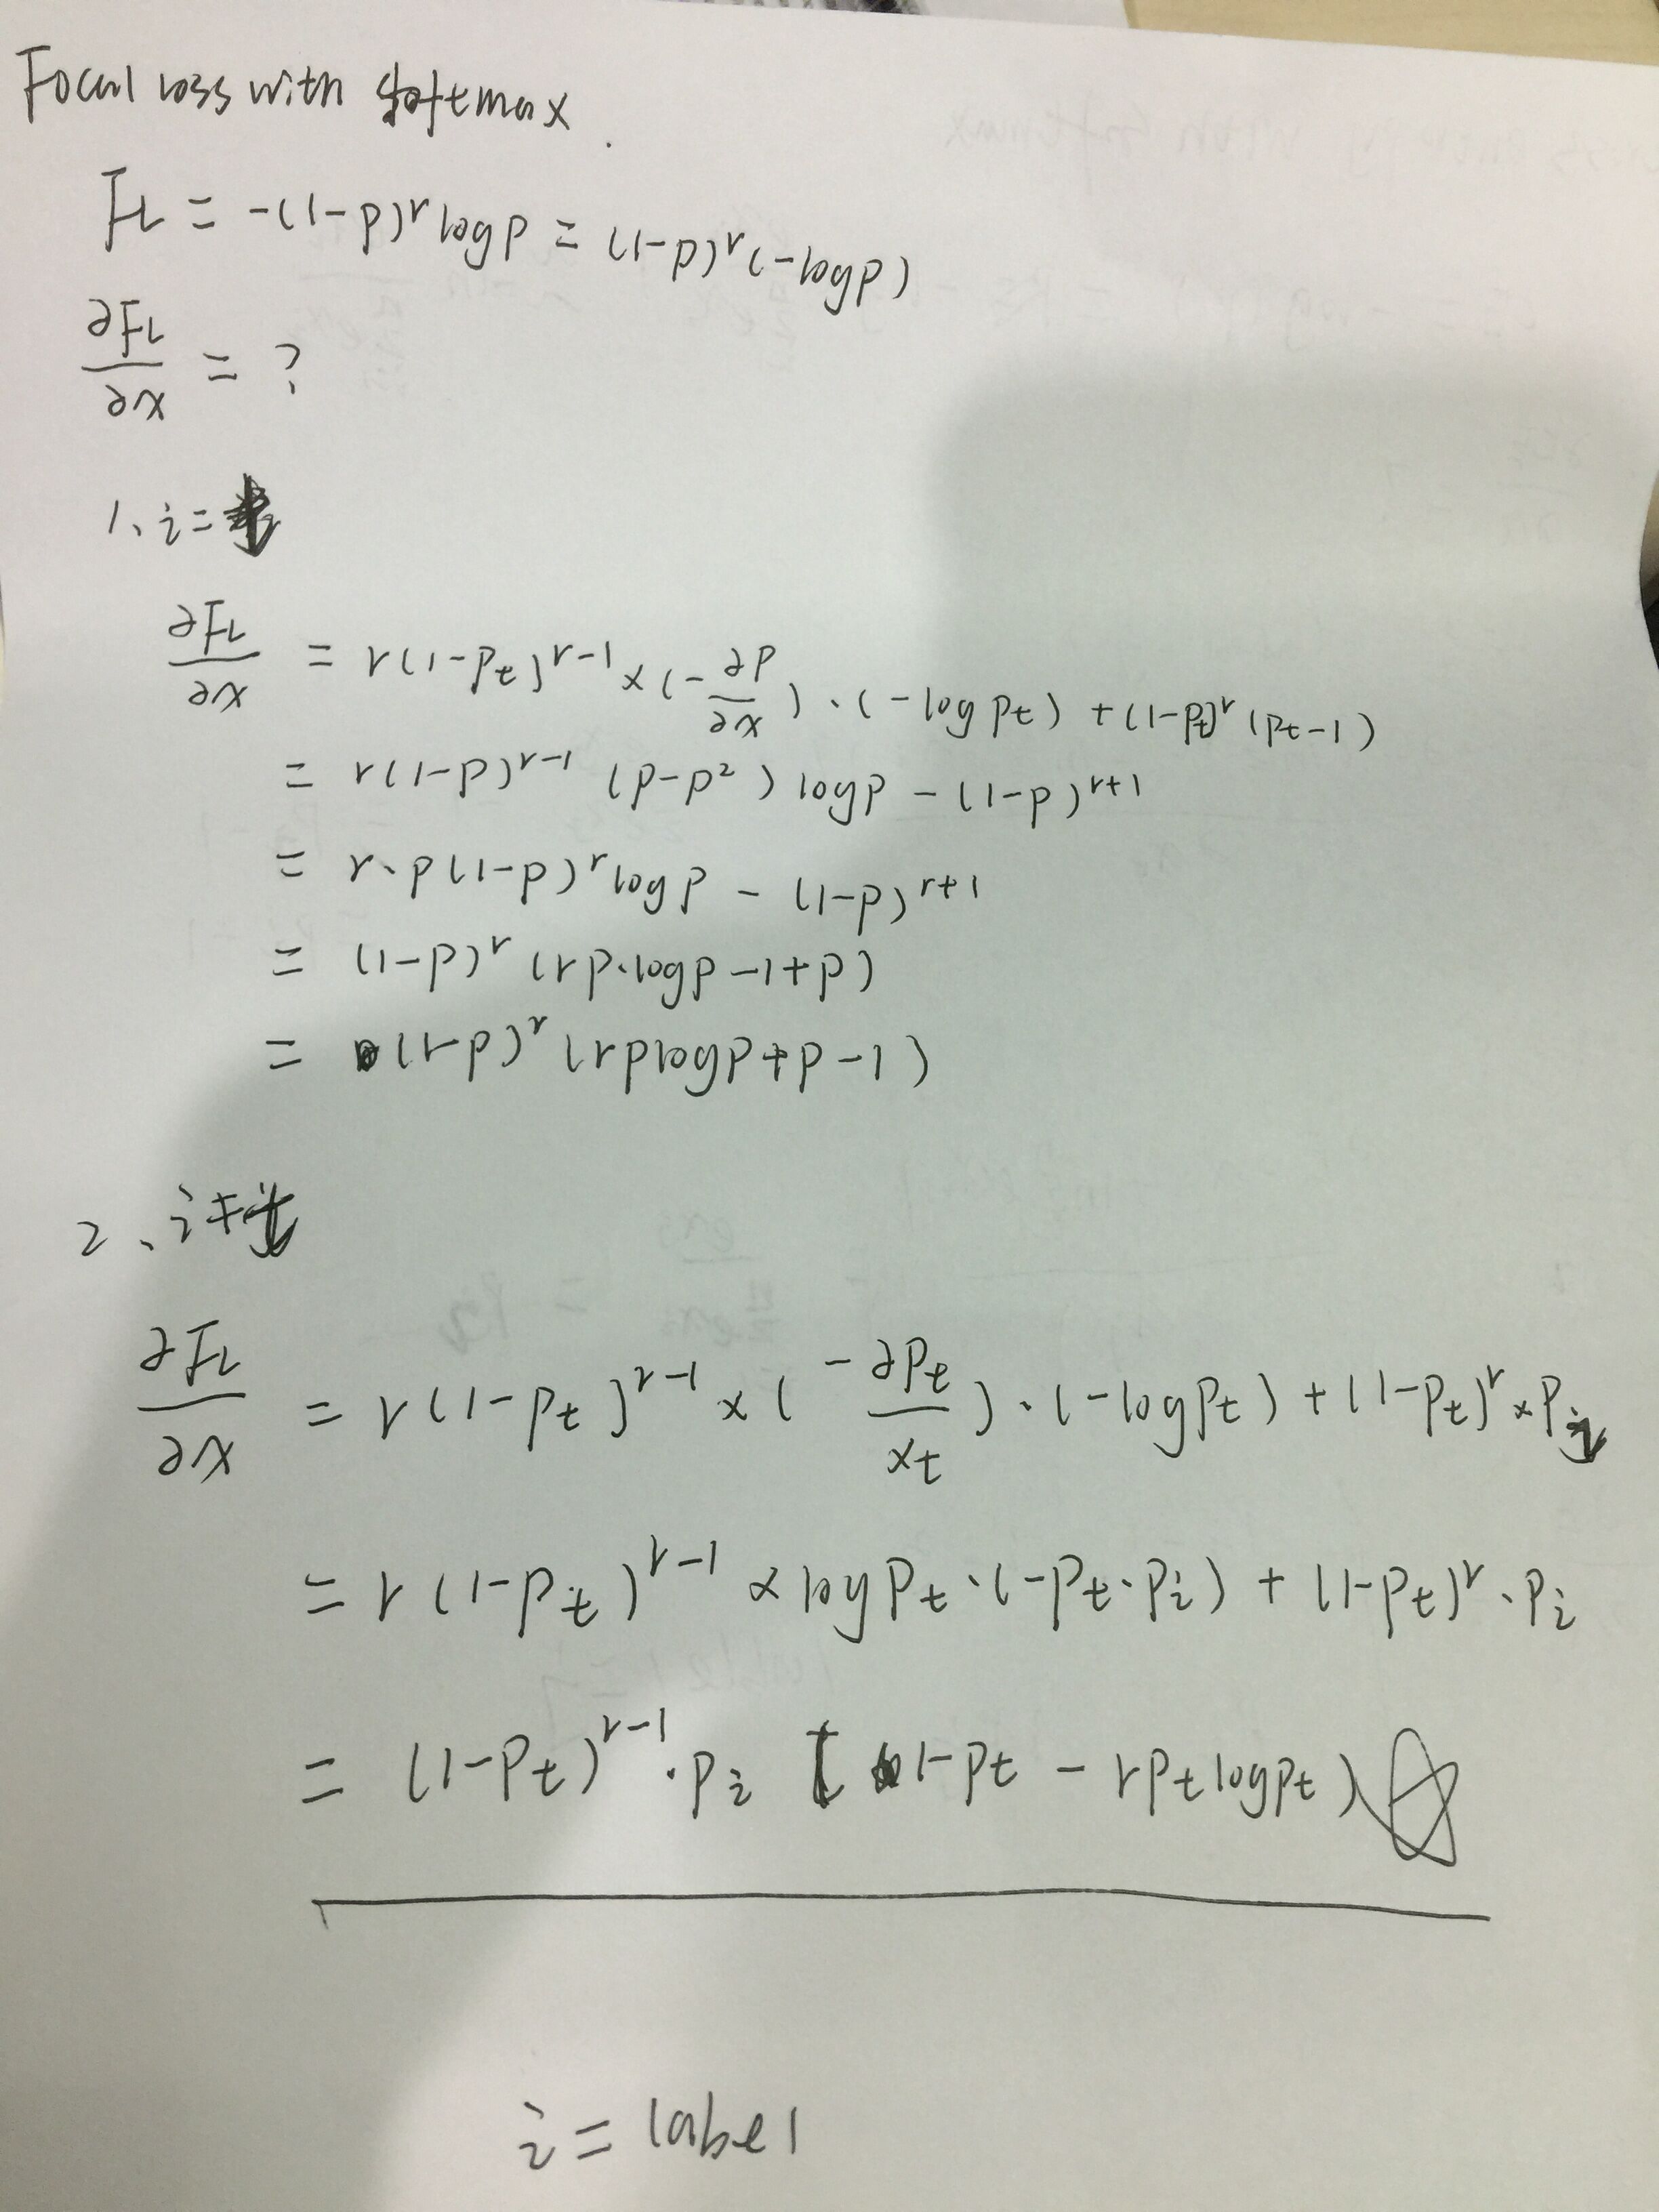 Focal loss with softmax.
FL = -(1-p)^r log p = (1-p)^r (-log p)
∂FL/∂x = ?
1、i=t
∂FL/∂x = r(1-p_t)^{r-1} × (-∂p/∂x)·(-log p_t) + (1-p_t)^r (p_t-1)
= r(1-p)^{r-1} (p-p²) log p - (1-p)^{r+1}
= r·p(1-p)^r log p - (1-p)^{r+1}
= (1-p)^r (rp·log p -1+p)
= (1-p)^r (rp log p + p - 1)
2、i≠t
∂FL/∂x = r(1-p_t)^{r-1} × (-∂p_t/x_t)·(-log p_t) + (1-p_t)^r × p_i
= r(1-p_t)^{r-1} × log p_t·(-p_t·p_i) + (1-p_t)^r·p_i
= (1-p_t)^{r-1}·p_i (1-p_t - rp_t log p_t)
i = label